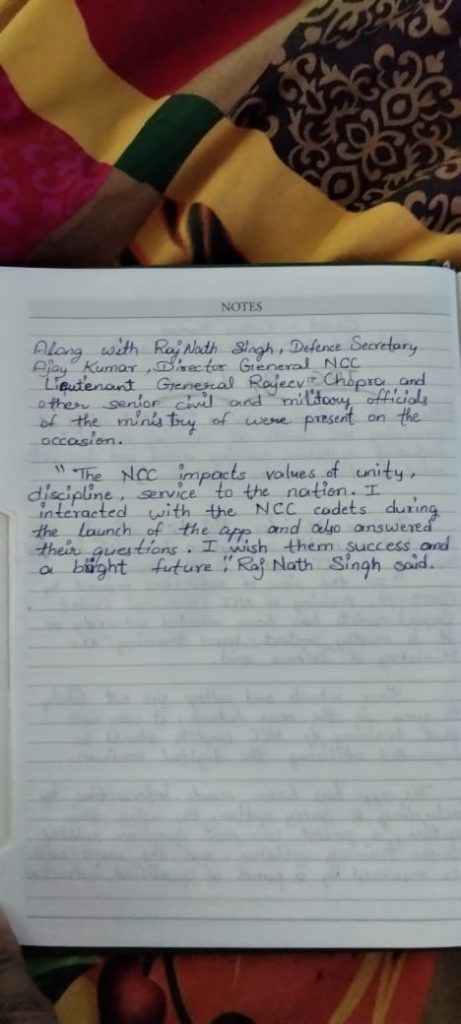 NOTES
Along with Raj Nath Singh, Defence Secretary
Ajay Kumar, Director General NCC
Lieutenant General Rajeev Chopra, and
other senior civil and military officials
of the ministry of were present on the
occasion.
" The NCC impacts values of unity,
discipline, service to the nation. I
interacted with the NCC cadets during
the launch of the app and also answered
their questions. I wish them success and
a bright future," Raj Nath Singh said.